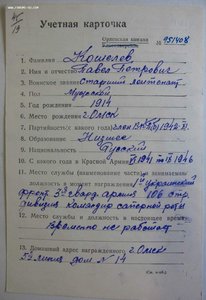 Учетная карточка
Орденская книжка
№ 951408
1. Фамилия Кошелев
2. Имя и отчество Павел Петрович
3. Воинское звание Старший лейтенант
4. Пол Мужской
5. Год рождения 1914
6. Место рождения г. Омск
7. Партийность(с какого года) член ВКП(б) 1942 г.
8. Образование Низшее
9. Национальность Русский
10. С какого года в Красной Армии 1941 1946
11. Место службы (наименование части) и занимаемая
должность в момент награждения 1й Украинский
фронт 3я гвард. армия 106 стр.
дивизия командир саперной роты
12. Место службы и должность в настоящее время
Временно не работает
13. Домашний адрес награжденного г. Омск
5я линия дом № 14